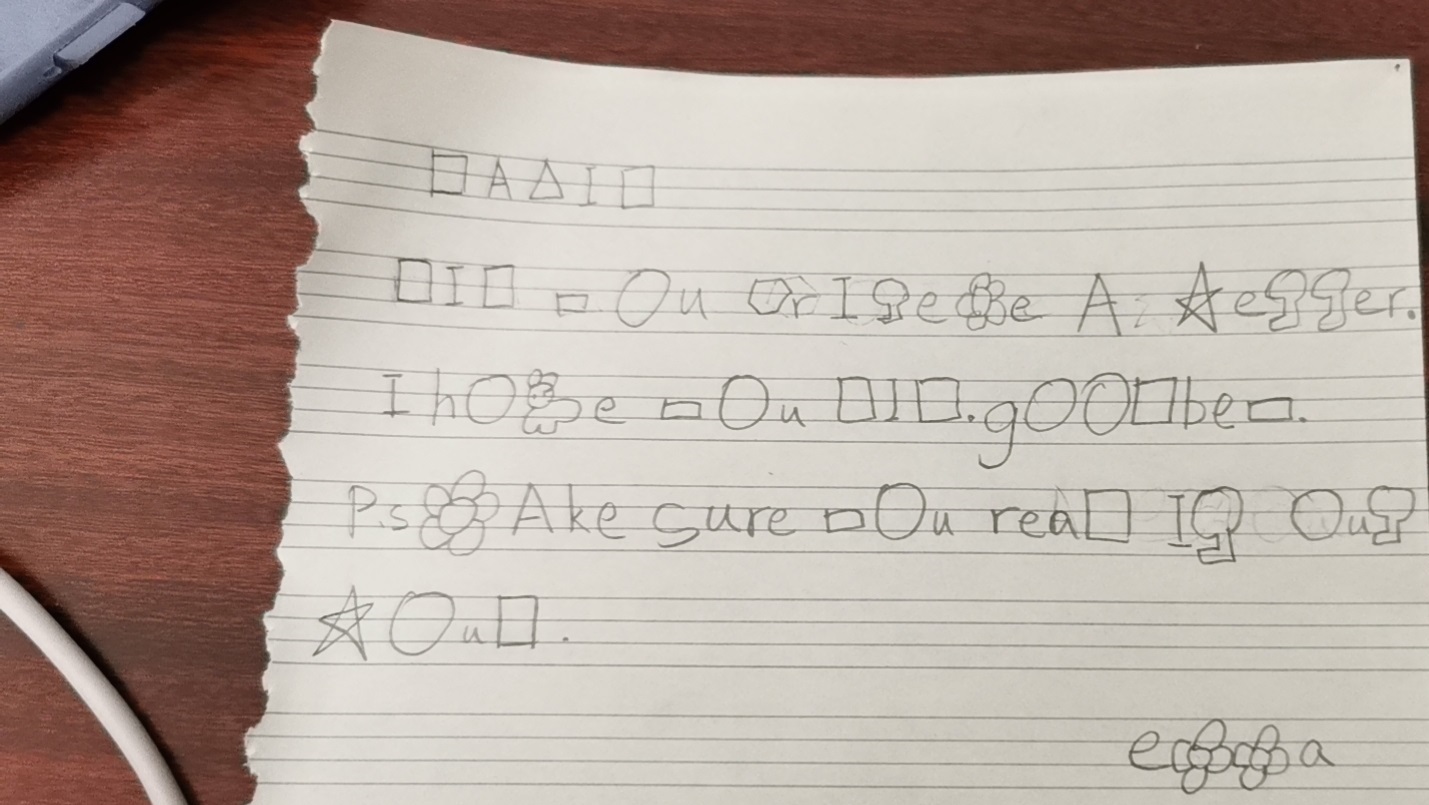 □A△I□
□I□ ▭Ou ⬠rI🌳e ✿e A ☆e🌳🌳er.
I hO✿e ▭Ou □I□. gOO□be▭.
P.s ✿Ake sure ▭Ou rea□ I🌳 Ou🌳
☆Ou□.
e✿✿a